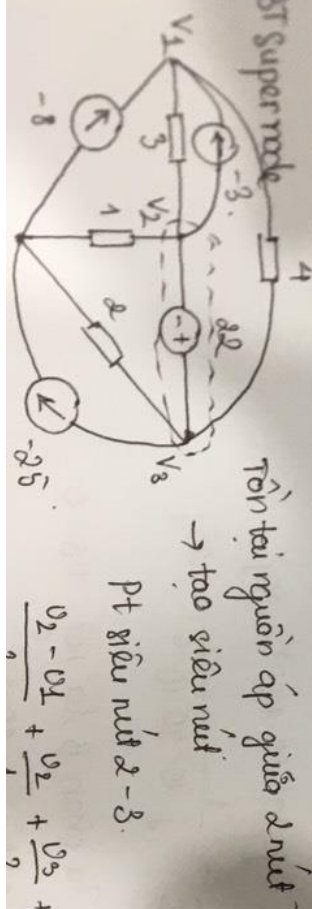 BT Supernode
4
-3.
V1
3
V2
22
- +
V3
-8
1
2
-25.
Tồn tại nguồn áp giữa 2 nút
→ tạo siêu nút
Pt siêu nút 2-3.
v2 - v1 + v2 + v3 +